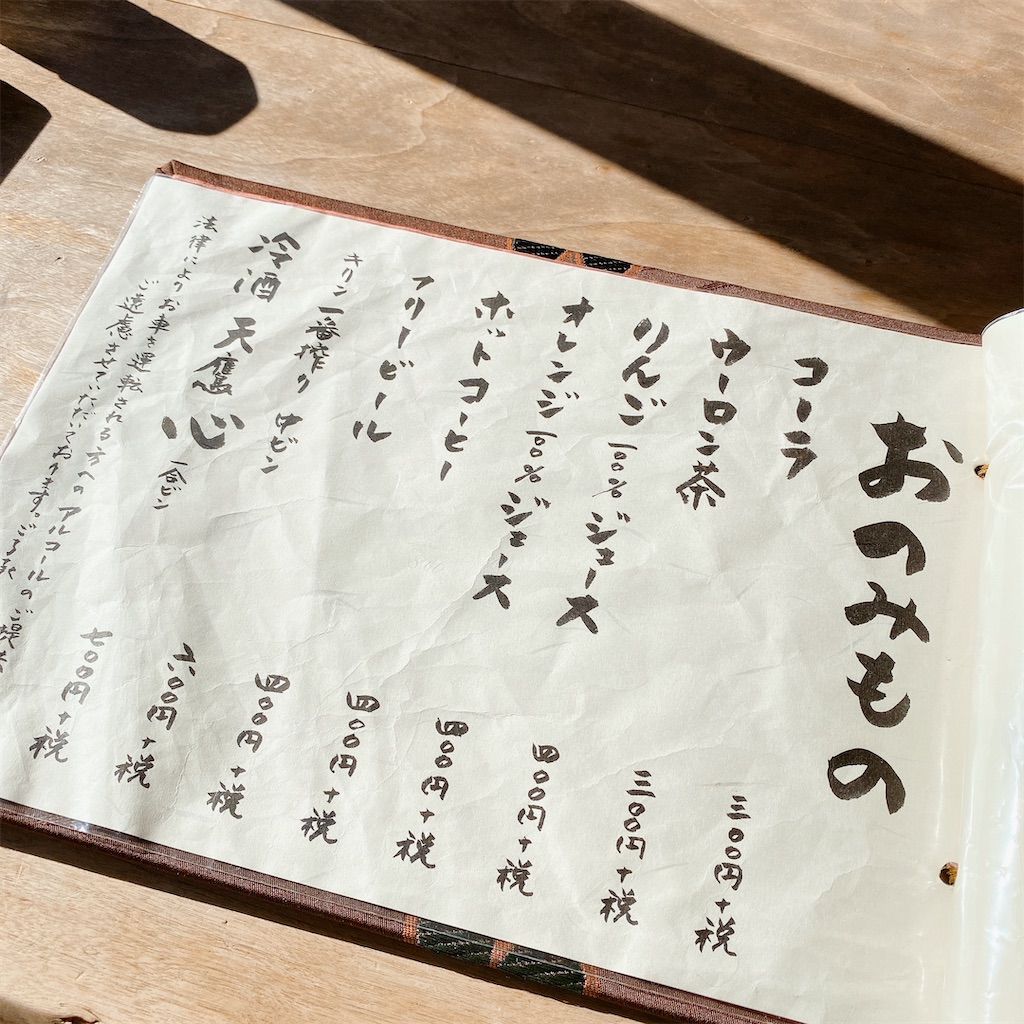 おのみもの
コーラ 三〇〇円+税
ウーロン茶 三〇〇円+税
りんご 一〇〇% ジュース 四〇〇円+税
オレンジ 一〇〇% ジュース 四〇〇円+税
ホットコーヒー 四〇〇円+税
フリービール 四〇〇円+税
キリン一番搾り 中ビン 六〇〇円+税
冷酒 天鷹 心 一合ビン 七〇〇円+税
法律により お車を運転される方へのアルコールのご提
ご遠慮させていただいております。ご了承